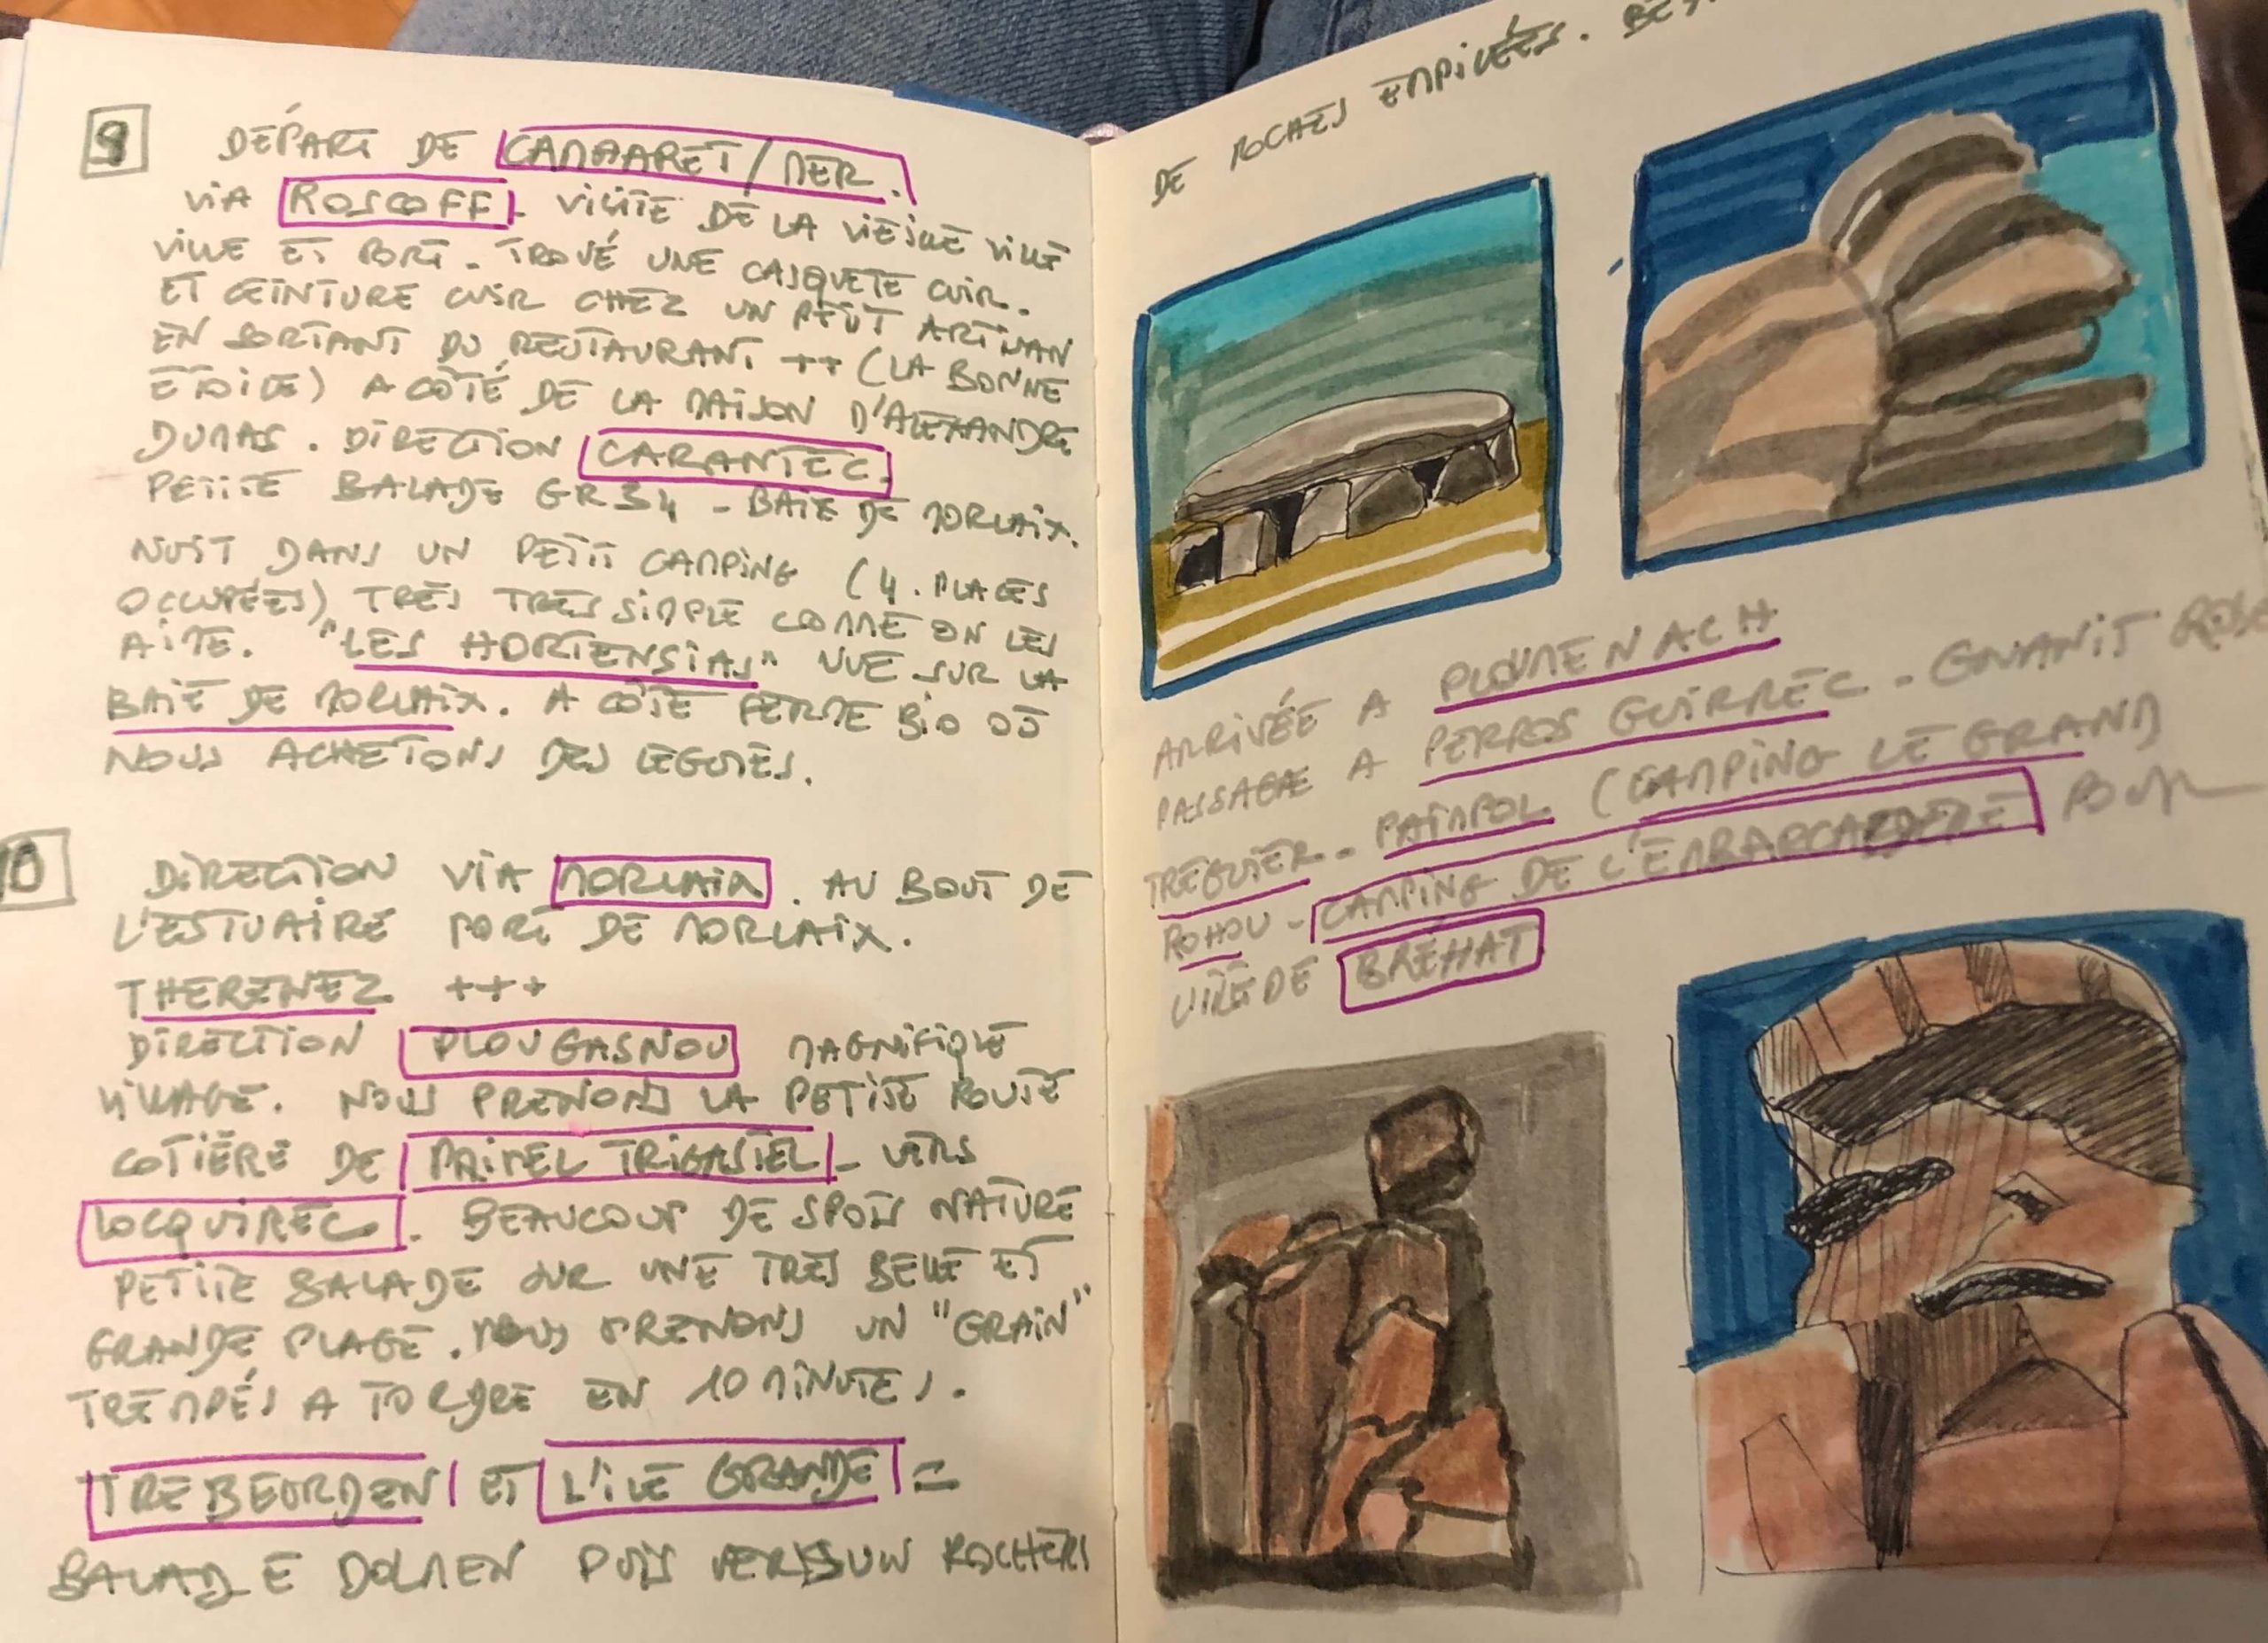 9
DÉPART DE CAMAARET/MER.
VIA ROSCOFF. VISITE DE LA VIEILLE VILLE
VILLE ET PORT. TROVÉ UNE CASQUETE CUIR.
ET CEINTURE CUIR CHEZ UN PETIT ARTISAN
EN SORTANT DU RESTAURANT ++ (LA BONNE
ETOILE) A CÔTÉ DE LA MAISON D'ALEXANDRE
DUMAS. DIRECTION CARANTEC.
PETITE BALADE GR34 - BAIE DE MORLAIX.
NUIT DANS UN PETIT CAMPING (4. PLACES
OCCUPÉES) TRÈS TRES SIMPLE COMME ON LES
AIME. "LES HORTENSIAS" VUE SUR LA
BAIE DE MORLAIX. A CÔTÉ FERME BIO OÙ
NOUS ACHETONS DES LEGUMES.
10
DIRECTION VIA MORLAIX. AU BOUT DE
L'ESTUAIRE PORT DE MORLAIX.
THERENEZ +++
DIRECTION PLOUGASNOU MAGNIFIQUE
VILLAGE. NOUS PRENONS LA PETITE ROUTE
COTIÈRE DE PRIMEL TRIGASTEL - VERS
LOCQUIREC. BEAUCOUP DE SPOTS NATURE
PETITE BALADE SUR UNE TRES BELLE ET
GRANDE PLAGE. NOUS PRENONS UN "GRAIN"
TREMPÉS A TORDRE EN 10 MINUTES.
TREBEURDEN ET L'ILE GRANDE =
BALADE DOLMEN PUIS VERS UN ROCHERS
DE ROCHES EMPILÉES.
ARRIVÉE A PLOUMENACH
PASSAGE A PERROS GUIRREC - GRANIT
TREGUIER - PAIMPOL (CAMPING LE GRAND
ROHOU - CAMPING DE L'EMBARCADERE POUR
L'ILE DE BRÉHAT